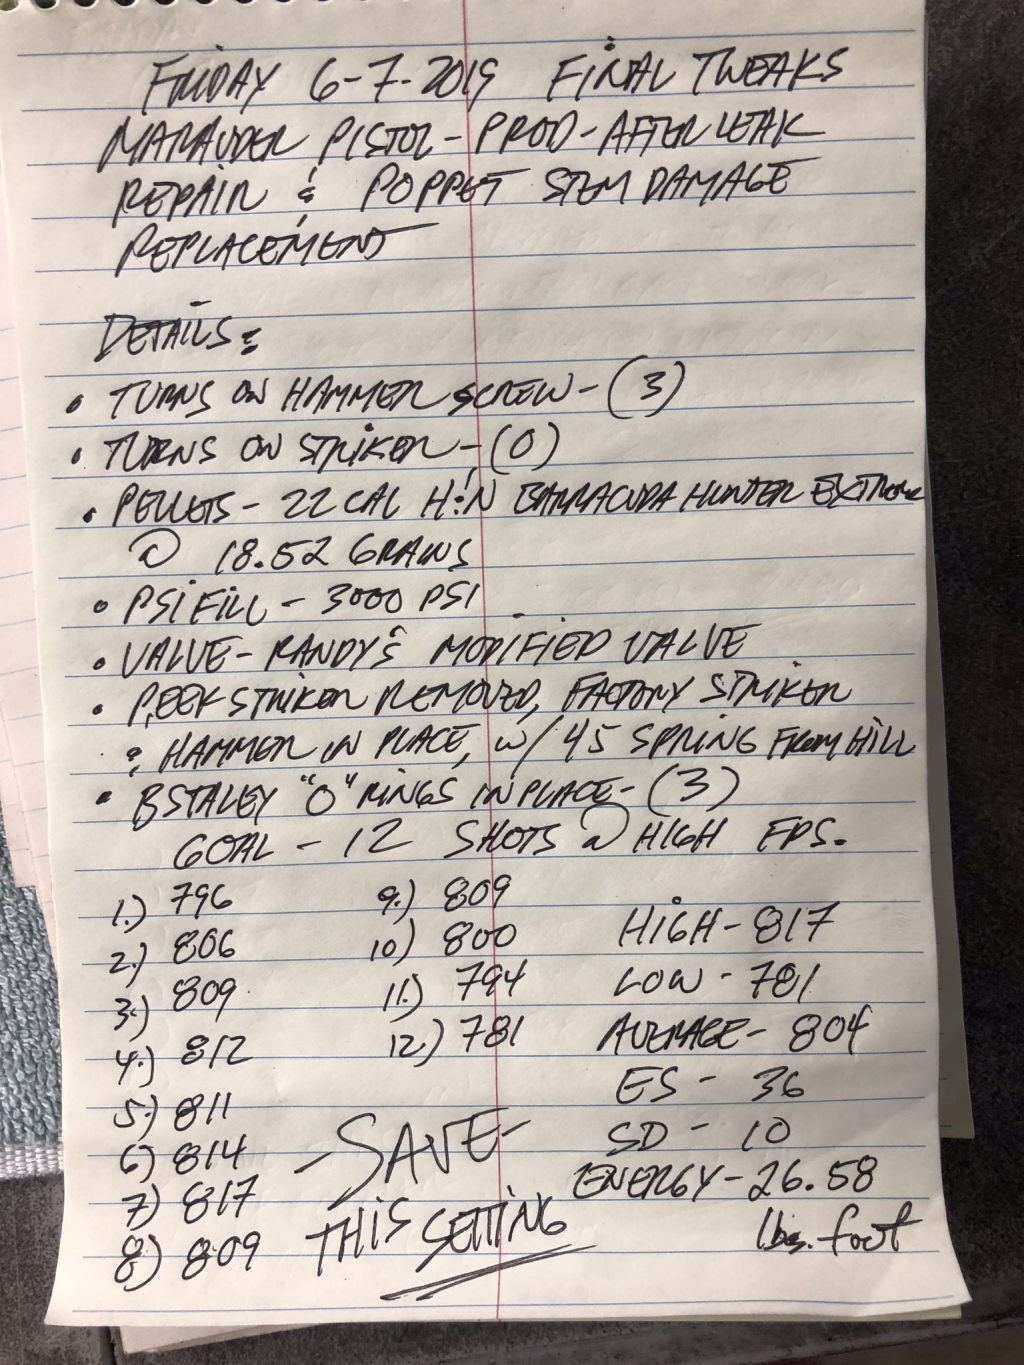 FRIDAY 6-7-2019 FINAL TWEAKS
MARAUDER PISTOL - PROD - AFTER LEAK
REPAIR & POPPET STEM DAMAGE
REPLACEMENT
DETAILS:
• TURNS ON HAMMER SCREW - (3)
• TURNS ON STRIKER - (0)
• PELLETS - 22 CAL H&N BARRACUDA HUNTER EXTREME
@ 18.52 GRAINS
• PSI FILL - 3000 PSI
• VALVE - RANDY'S MODIFIED VALVE
• PEEK STRIKER REMOVED, FACTORY STRIKER
& HAMMER IN PLACE, w/ 45 SPRING FROM HILL
• BSTALEY "O" RINGS IN PLACE - (3)
GOAL - 12 SHOTS @ HIGH FPS.
1.) 796
2.) 806
3.) 809
4.) 812
5.) 811
6) 814
7) 817
8) 809
9.) 809
10) 800
11.) 794
12.) 781
HIGH - 817
LOW - 781
AVERAGE - 804
ES - 36
SD - 10
ENERGY - 26.58
lbs. foot
- SAVE -
THIS SETTING